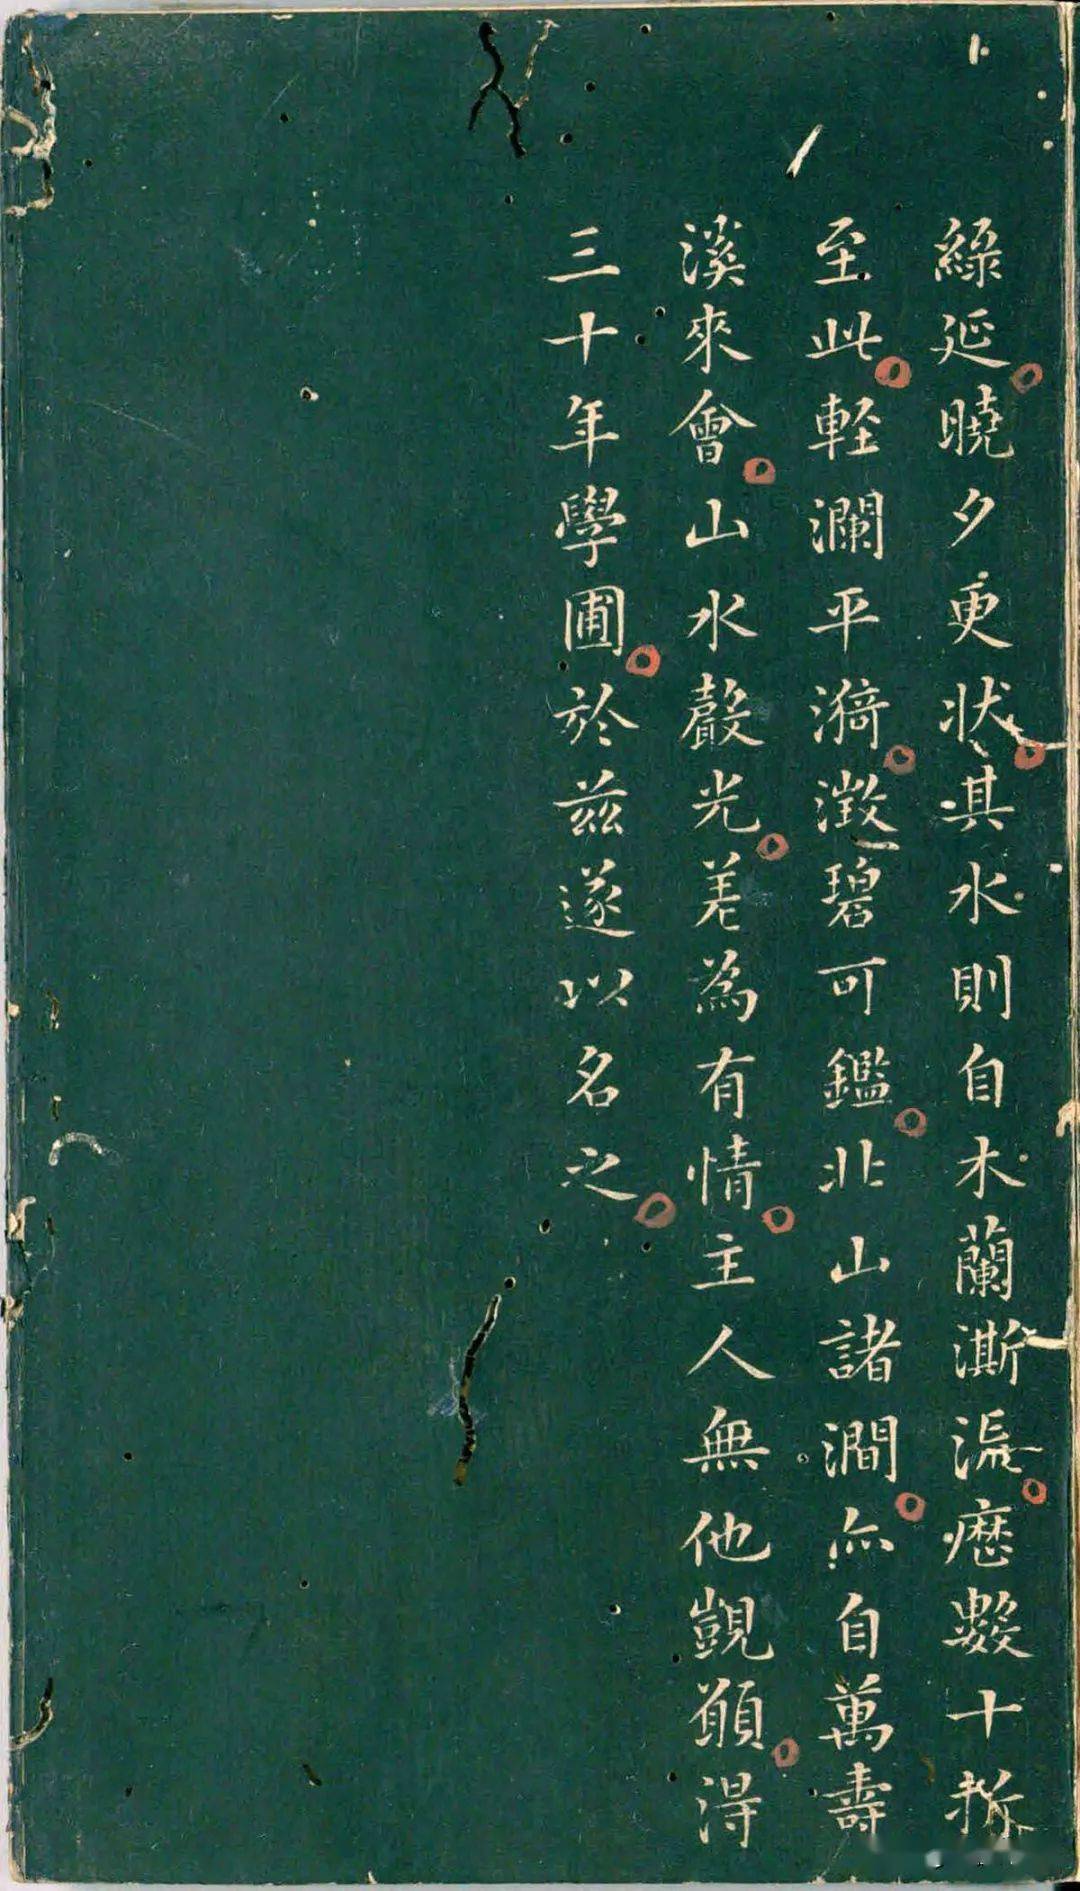 綠延曉夕更狀其水則自木蘭澌流歷數十折
至此輕瀾平漪澂碧可鑑北山諸澗亦自萬壽
溪來會山水聲光差為有情主人無他覬願得
三十年學圃於茲遂以名之